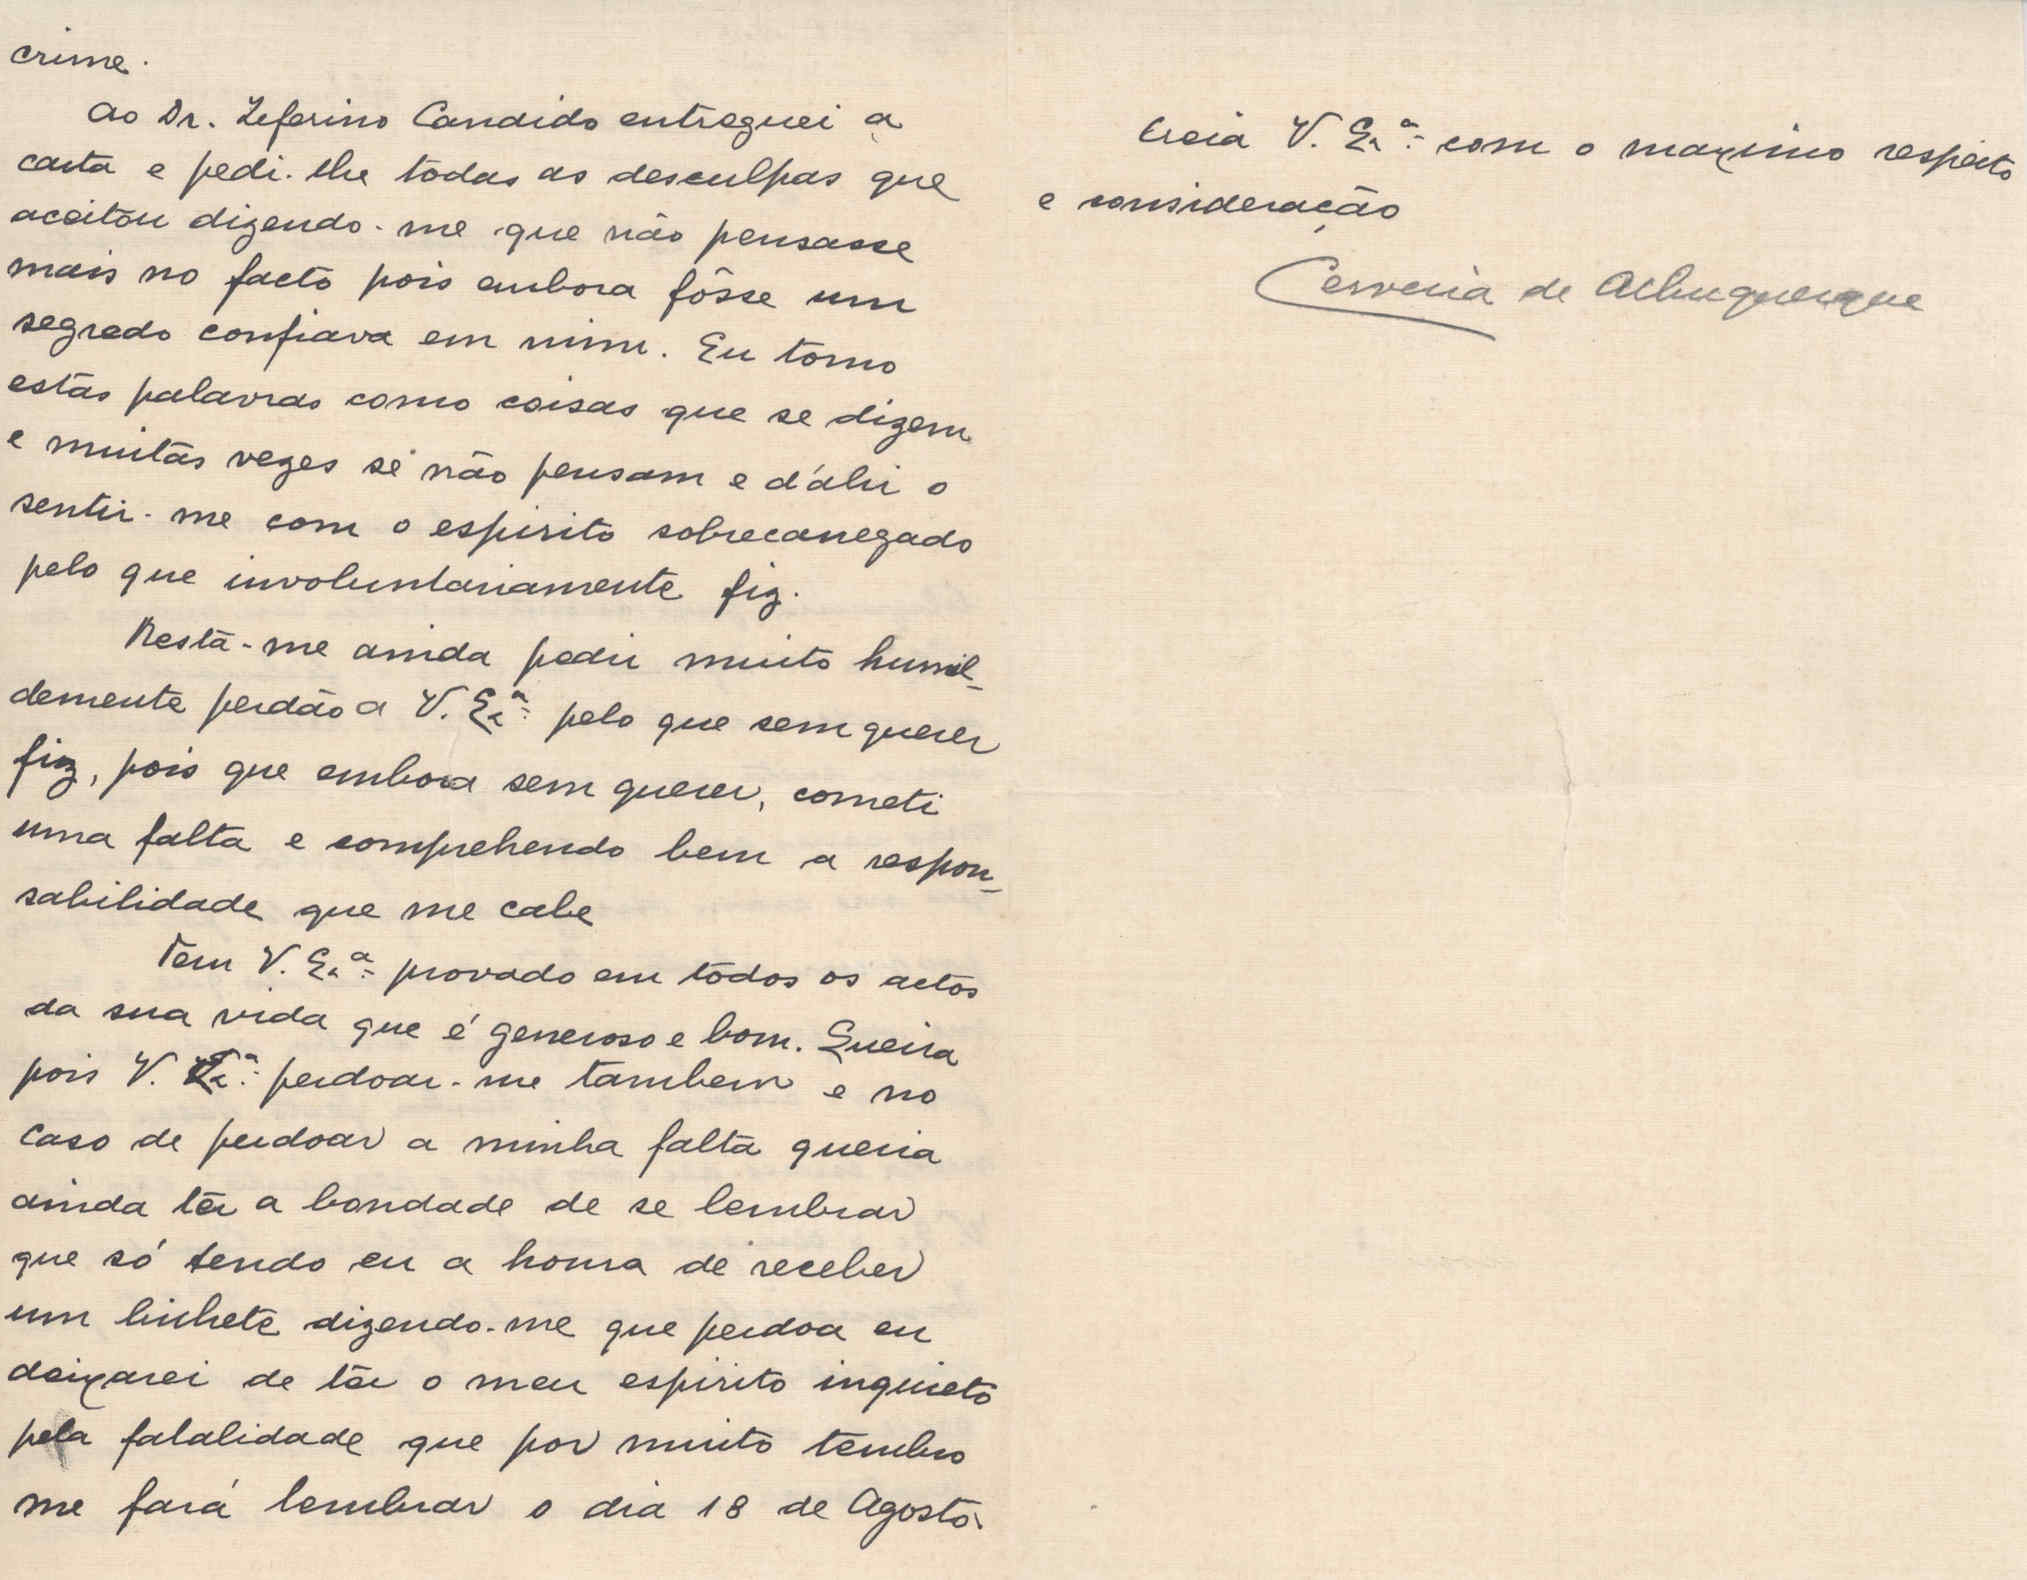 crime.
Ao Dr. Zeferino Candido entreguei a
carta e pedi-lhe todas as desculpas que
aceitou dizendo-me que não pensasse
mais no facto pois embora fôsse um
segredo confiava em mim. Eu tomo
estas palavras como coisas que se dizem
e muitas vezes se não pensam e d'ahi o
sentir-me com o espirito sobrecarregado
pelo que involuntariamente fiz.
Resta-me ainda pedir muito humil-
demente perdão a V. Exª pelo que sem querer
fiz, pois que embora sem querer, cometi
uma falta e comprehendo bem a respon-
sabilidade que me cabe
Tem V. Exª provado em todos os actos
da sua vida que é generoso e bom. Queira
pois V. Exª perdoar-me tambem e no
caso de perdoar a minha falta queria
ainda têr a bondade de se lembrar
que só tendo eu a honra de receber
um bilhete dizendo-me que perdoa eu
deixarei de têr o meu espirito inquieto
pela fatalidade que por muito tembro
me fará lembrar o dia 18 de Agosto.
Creia V. Exª com o maximo respeito
e consideração
Cerveira de Albuquerque